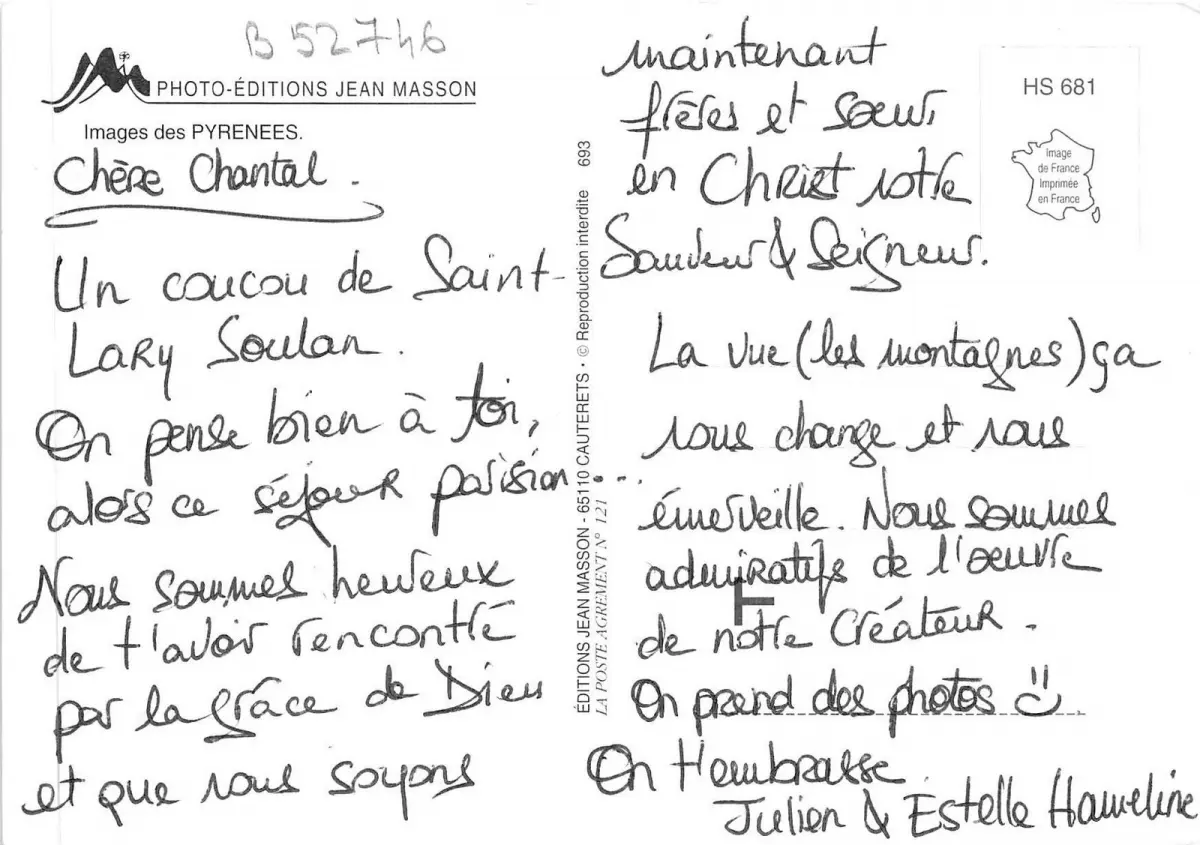 B 52746
PHOTO-ÉDITIONS JEAN MASSON
Images des PYRENEES.
Chère Chantal.
Un coucou de Saint-
Lary Soulan.
On pense bien à toi,
alors ce séjour parisien...
Nous sommes heureux
de t'avoir rencontré
par la grâce de Dieu
et que nous soyons
ÉDITIONS JEAN MASSON - 65110 CAUTERETS • © Reproduction interdite 693
LA POSTE AGREMENT N° 121
maintenant
frères et sœur,
en Christ notre
Sauveur & Seigneur.
La vue (les montagnes) ça
nous change et nous
émerveille. Nous sommes
admiratifs de l'oeuvre
de notre Créateur.
On prend des photos
On t'embrasse
Julien & Estelle Hameline
HS 681
Image
de France
Imprimée
en France